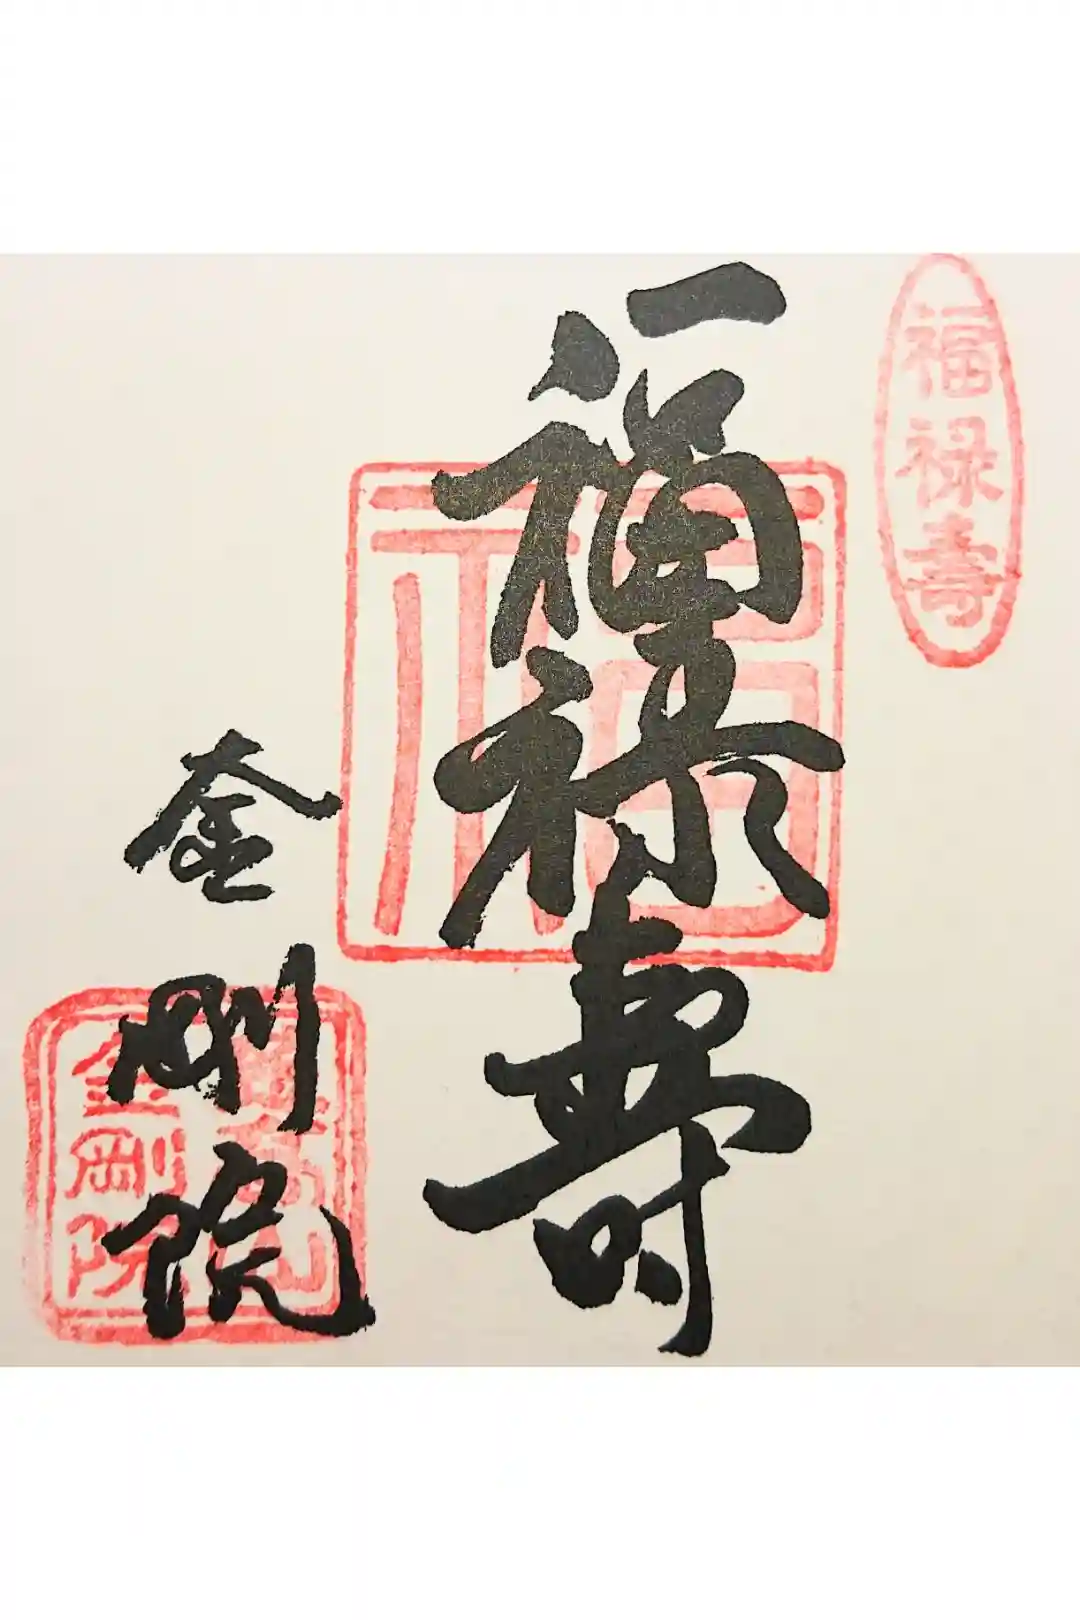 福禄寿
福禄壽
福
金剛院
金剛院